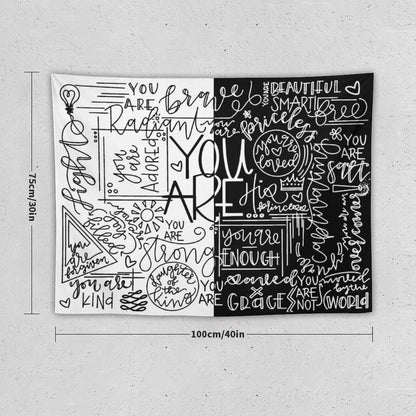 YOU ARE
Brave
YOU ARE
BEAUTIFUL
SMART
free
Radiant
you are
priceless
Light
you are
ADORED
YOU
ARE
you are
loved
YOU
ARE
SALT
His
princess
captivating
you are an
overcomer
YOU
ARE
Strong
you are
ENOUGH
you are
forgiven
you are
KIND
daughter
of the
King
saved
GRACE
YOU
ARE
NOT
moved
by the
WORLD
75cm/30in
100cm/40in